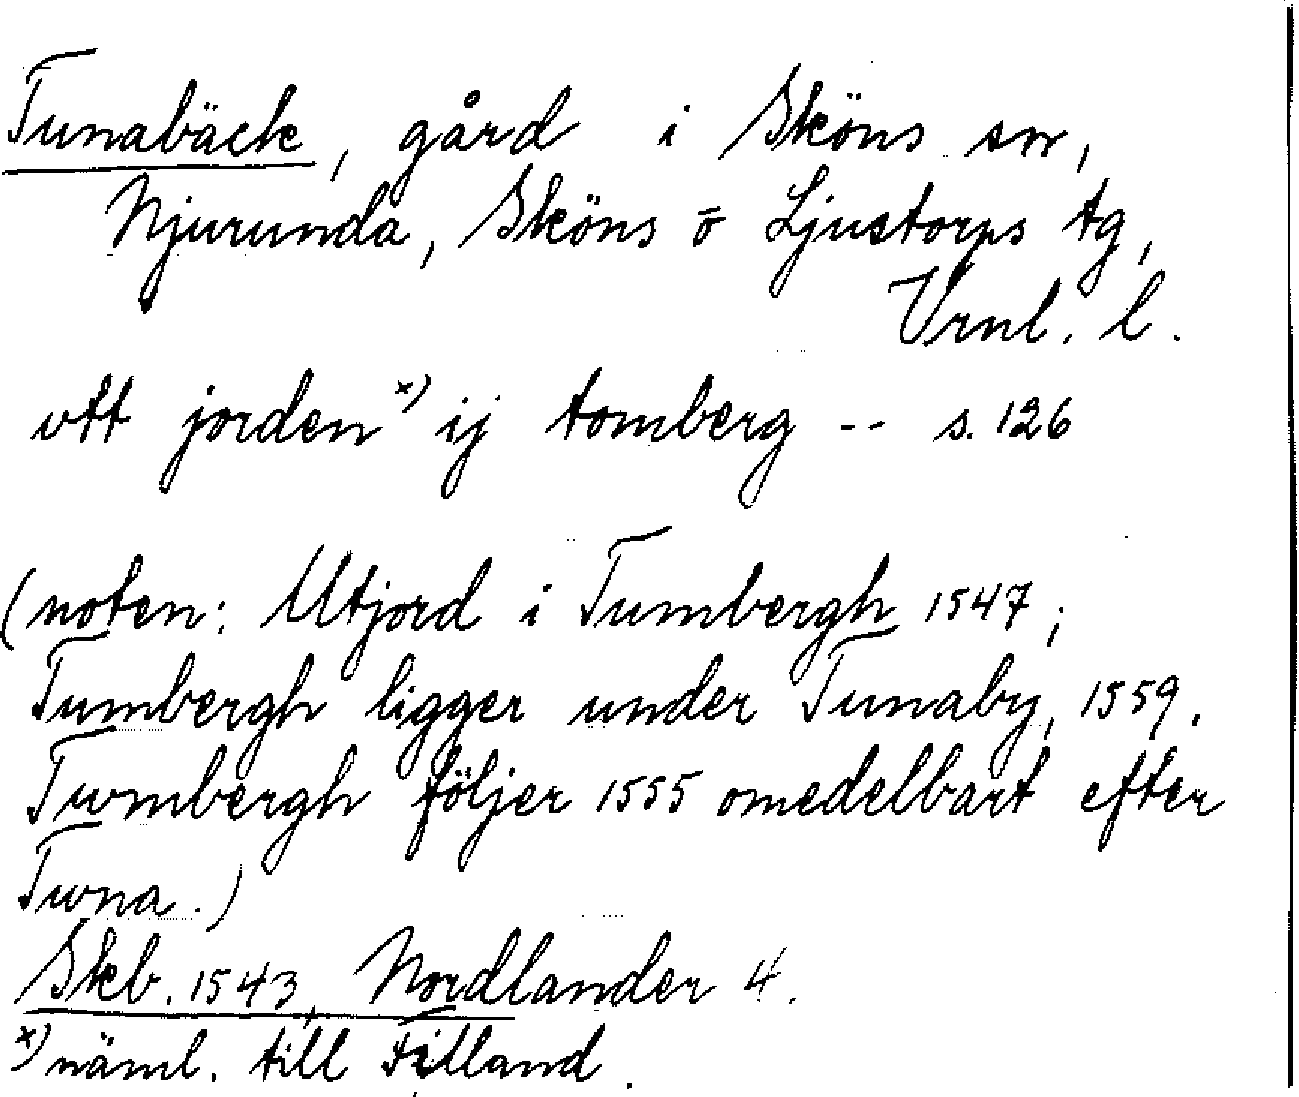 Tunabäck, gård i Sköns sn,
Njurunda, Sköns o Ljustorps tg,
Vrnl. l.
vtt jorden x) ij tomberg -- s. 126
(noten: Utjord i Tumbergh 1547;
Tumbergh ligger under Tunaby, 1559.
Twmbergh följer 1555 omedelbart efter
Twna.)
Skb. 1543, Nordlander 4.
x) näml. till Filland.